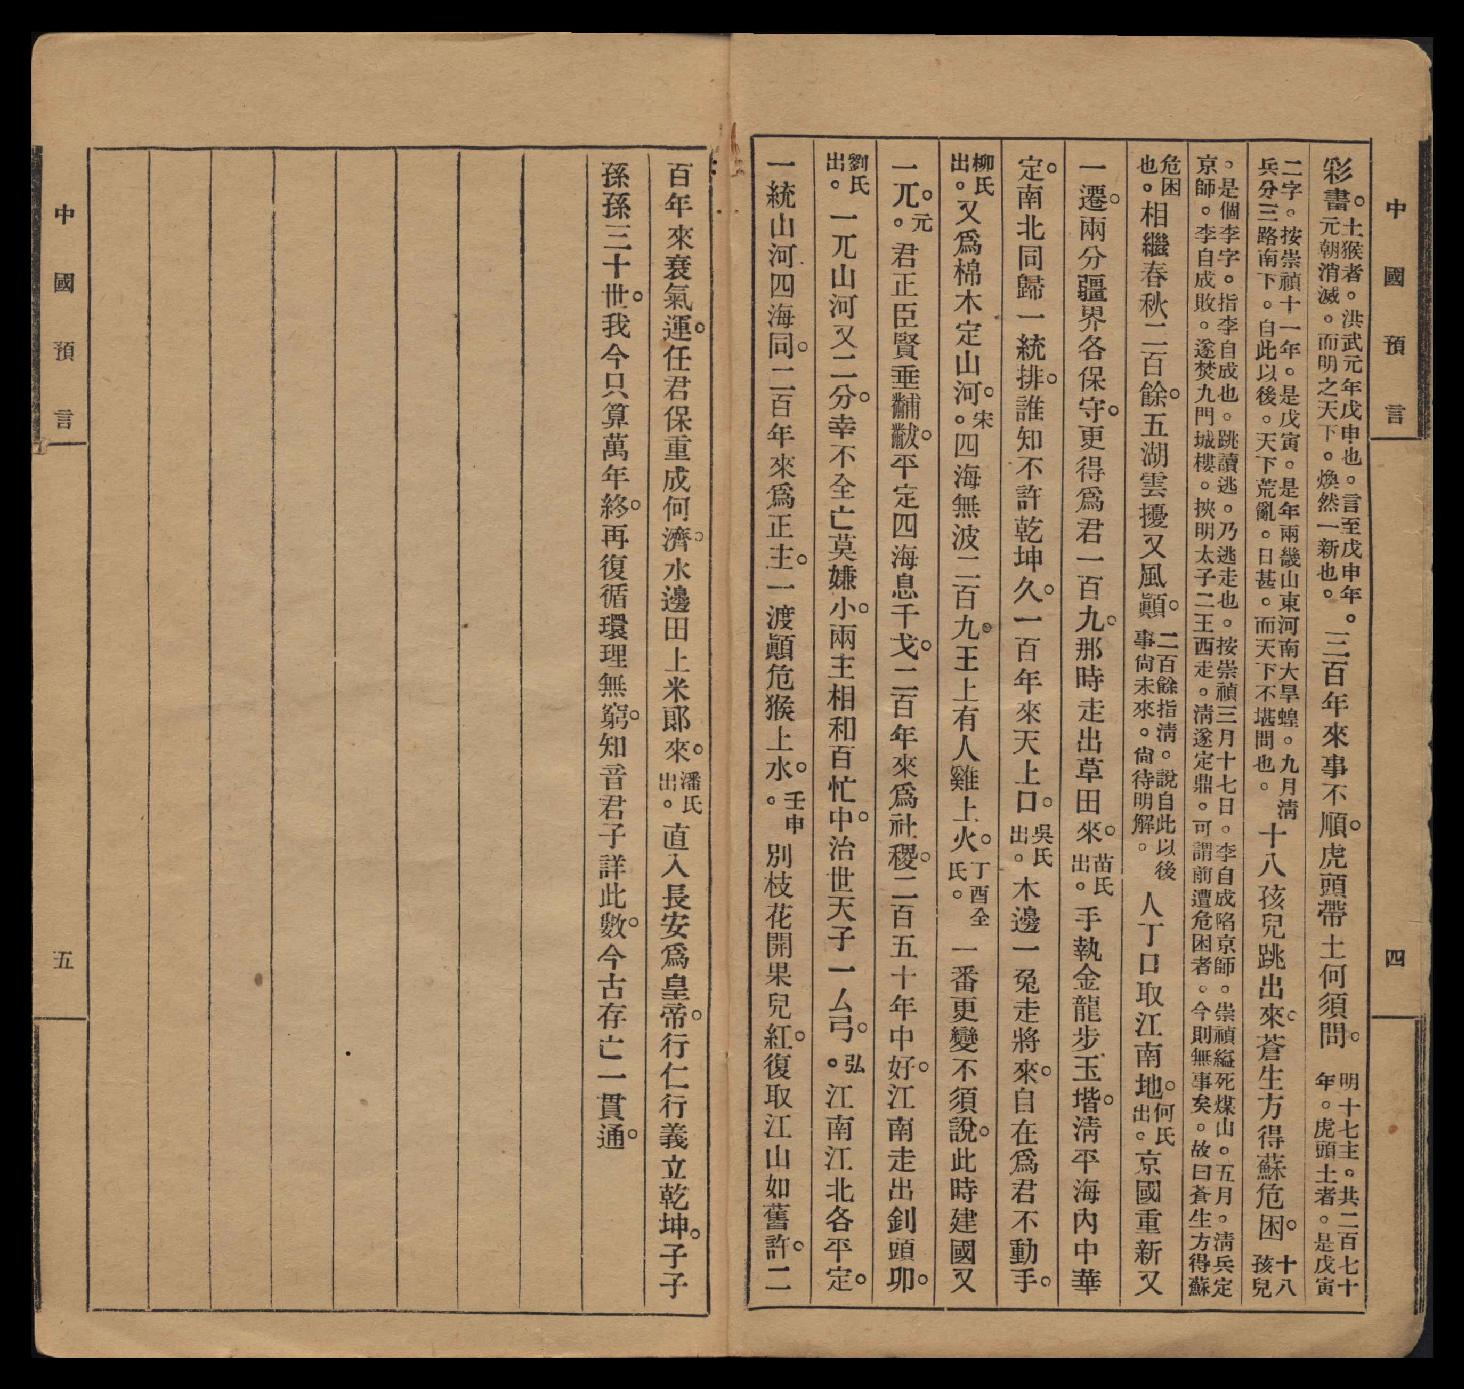 中國預言
四
彩畫。土猴者。洪武元年戊申也。言至戊申年。元朝消滅。而明之天下。煥然一新也。三百年來事不順。虎頭帶土何須問。明十七主。共二百七十年。虎頭土者。是戊寅
二字。按崇禎十一年。是戊寅。是年兩畿山東河南大旱蝗。九月清兵分三路南下。自此以後。天下荒亂。日甚。而天下不堪問也。十八孩兒跳出來。蒼生方得蘇危困。十八孩兒
。是個李字。指李自成也。跳讀逃。乃逃走也。按崇禎三月十七日。李自成陷京師。崇禎縊死煤山。五月。清兵定京師。李自成敗。遂焚九門城樓。挾明太子二王西走。清遂定鼎。可謂前遭危困者。今則無事矣。故曰蒼生方得蘇
危困也。相繼春秋二百餘。五湖雲擾又風顚。二百餘指清。說自此以後事尙未來。尙待明解。人丁口取江南地。何氏出。京國重新又
一遷。兩分疆界各保守。更得爲君一百九。那時走出草田來。苗氏出。手執金龍步玉堦。清平海內中華
定。南北同歸一統排。誰知不許乾坤久。一百年來天上口。吳氏出。木邊一兔走將來。自在爲君不動手。
柳氏出。又爲棉木定山河。宋。四海無波二百九。王上有人雞上火。丁酉全氏。一番更變不須說。此時建國又
一兀。元。君正臣賢垂黼黻。平定四海息干戈。二百年來爲社稷。二百五十年中好。江南走出釗頭卯。
劉氏出。一兀山河又二分。幸不全亡莫嫌小。兩主相和百忙中。治世天子一厶弓。弘。江南江北各平定。
一統山河四海同。二百年來爲正主。一渡顚危猴上水。壬申。別枝花開果兒紅。復取江山如舊許。二
百年來衰氣運。任君保重成何濟。水邊田上米郞來。潘氏出。直入長安爲皇帝。行仁行義立乾坤。子子
孫孫三十世。我今只算萬年終。再復循環理無窮。知音君子詳此數。今古存亡一貫通。
中國預言
五